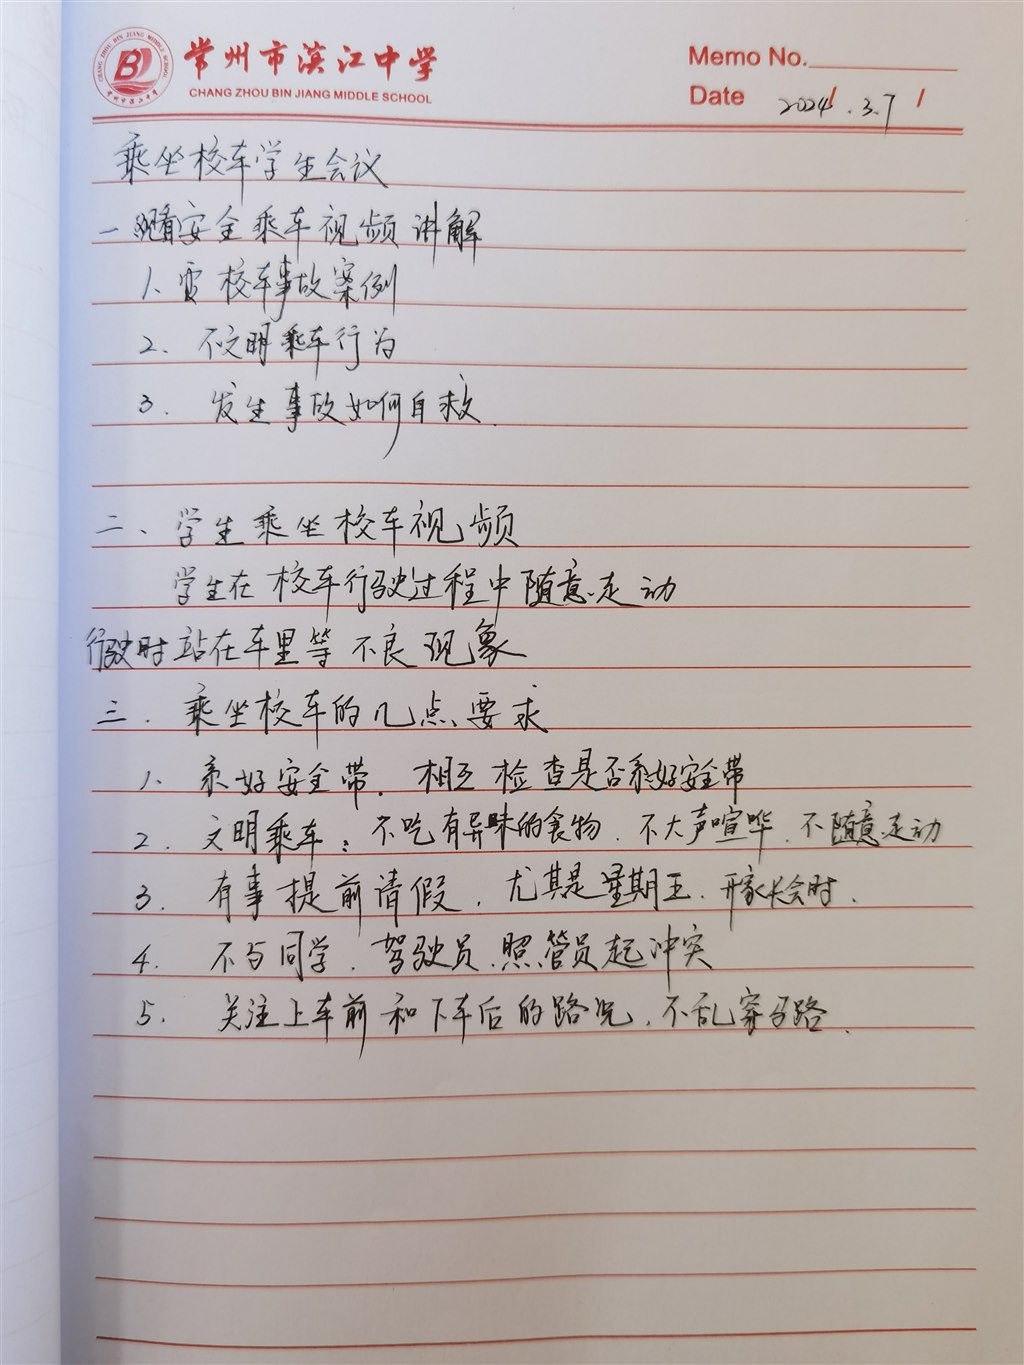 常州市滨江中学
CHANG ZHOU BIN JIANG MIDDLE SCHOOL
Memo No.
Date 2024.3.7
乘坐校车学生会议
一 观看安全乘车视频讲解
1. 校车事故案例
2. 不文明乘车行为
3. 发生事故如何自救.
二、学生乘坐校车视频
学生在校车行驶过程中随意走动
行驶时站在车里等不良现象
三. 乘坐校车的几点要求
1. 系好安全带. 相互检查是否系好安全带
2. 文明乘车: 不吃有异味的食物. 不大声喧哗. 不随意走动
3. 有事提前请假. 尤其是星期五. 开家长会时.
4. 不与同学.驾驶员.照管员起冲突
5. 关注上车前和下车后的路况. 不乱穿马路.